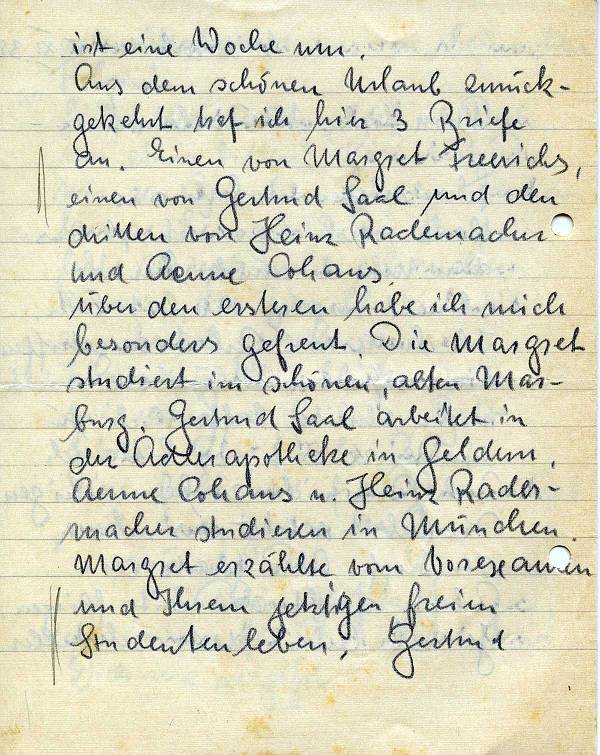 ist eine Woche um.
Aus dem schönen Urlaub zurück-
gekehrt traf ich hier 3 Briefe
an. Einen von Margret Freerichs,
einen von Gertrud Saal und den
dritten von Heinz Rademacher
und Aenne Cohaus.
über den ersteren habe ich mich
besonders gefreut. Die Margret
studiert im schönen, alten Mar-
burg. Gertrud Saal arbeitet in
der Adlerapotheke in Geldern,
Aenne Cohaus u. Heinz Rader-
macher studieren in München.
Margret erzählte vom Vorexamen
und Ihrem jetzigen freien
Studentenleben, Gertrud